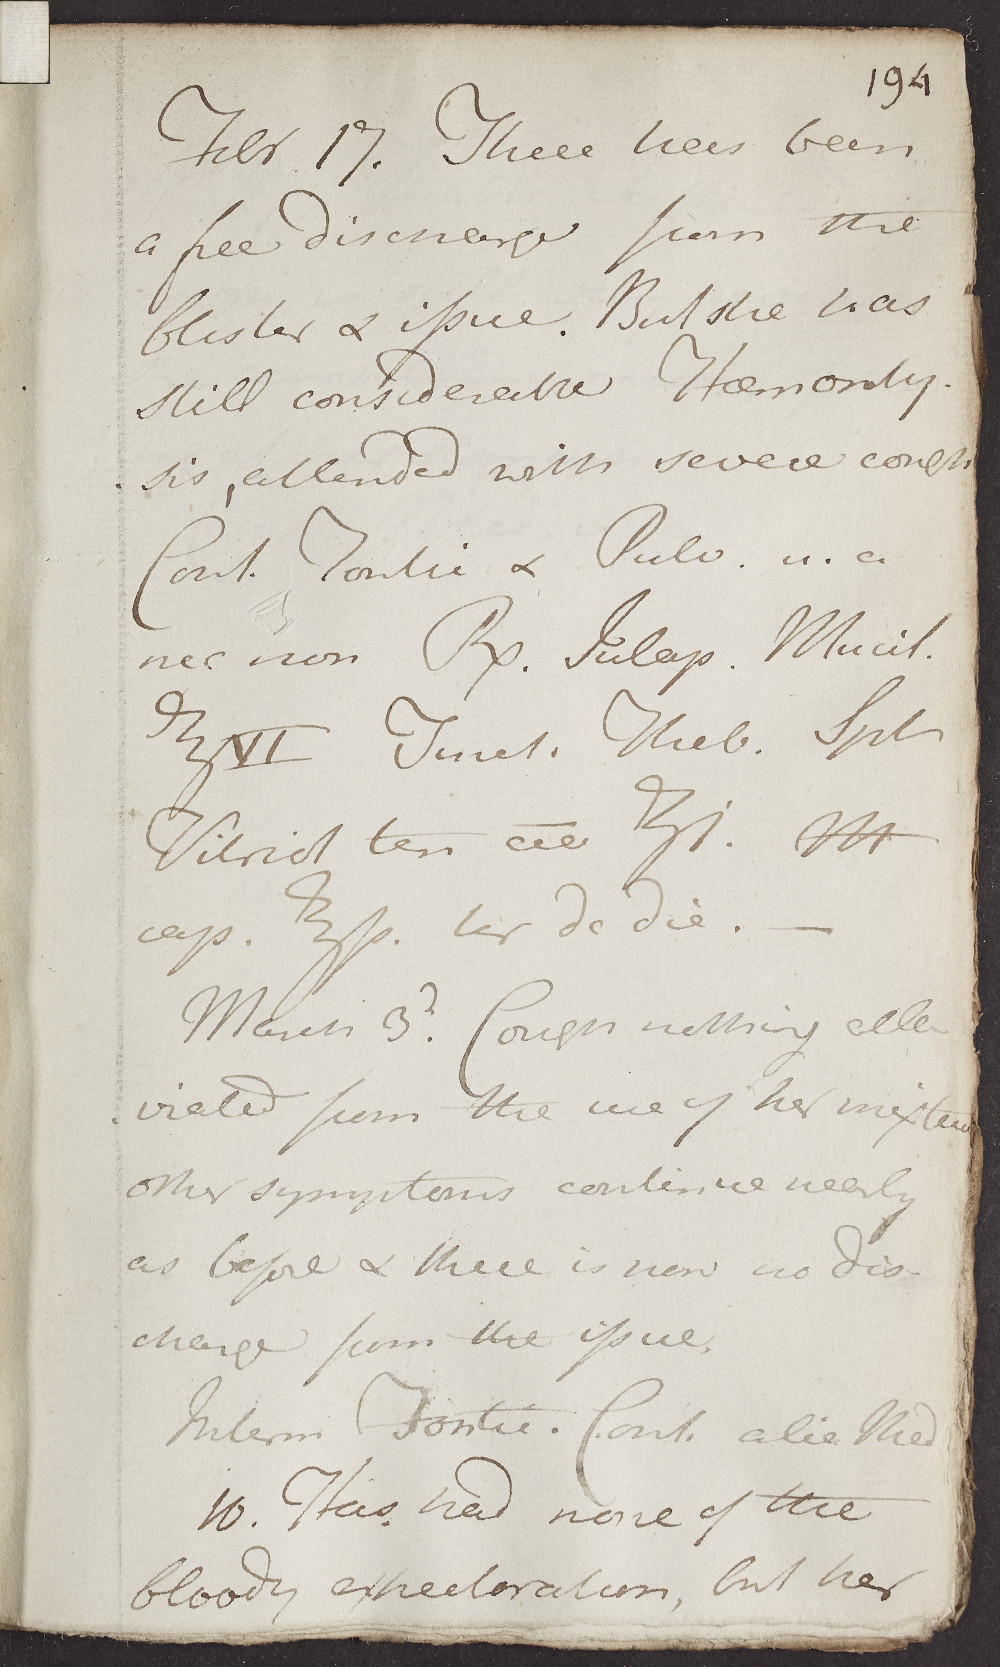 194
Febr 17. There has been
a free discharge from the
blister & issue. But she has
still considerable Hæmopty-
sis, attended with severe cough
Cont. Fontic & Pulv. u. a.
nec non Rx. Julap. Mucil.
℥VI Tinct. Theb. Spt
Vitriol ten aa ʒj. M
cap. ℥ſs. ter de die. —
March 3d. Cough nothing alle
viated from the use of her mixture
other symptoms continue nearly
as before & there is now no dis-
charge from the issue.
Interm Fontic. Cont. alia Med
10. Has had none of the
bloody expectoration, but her